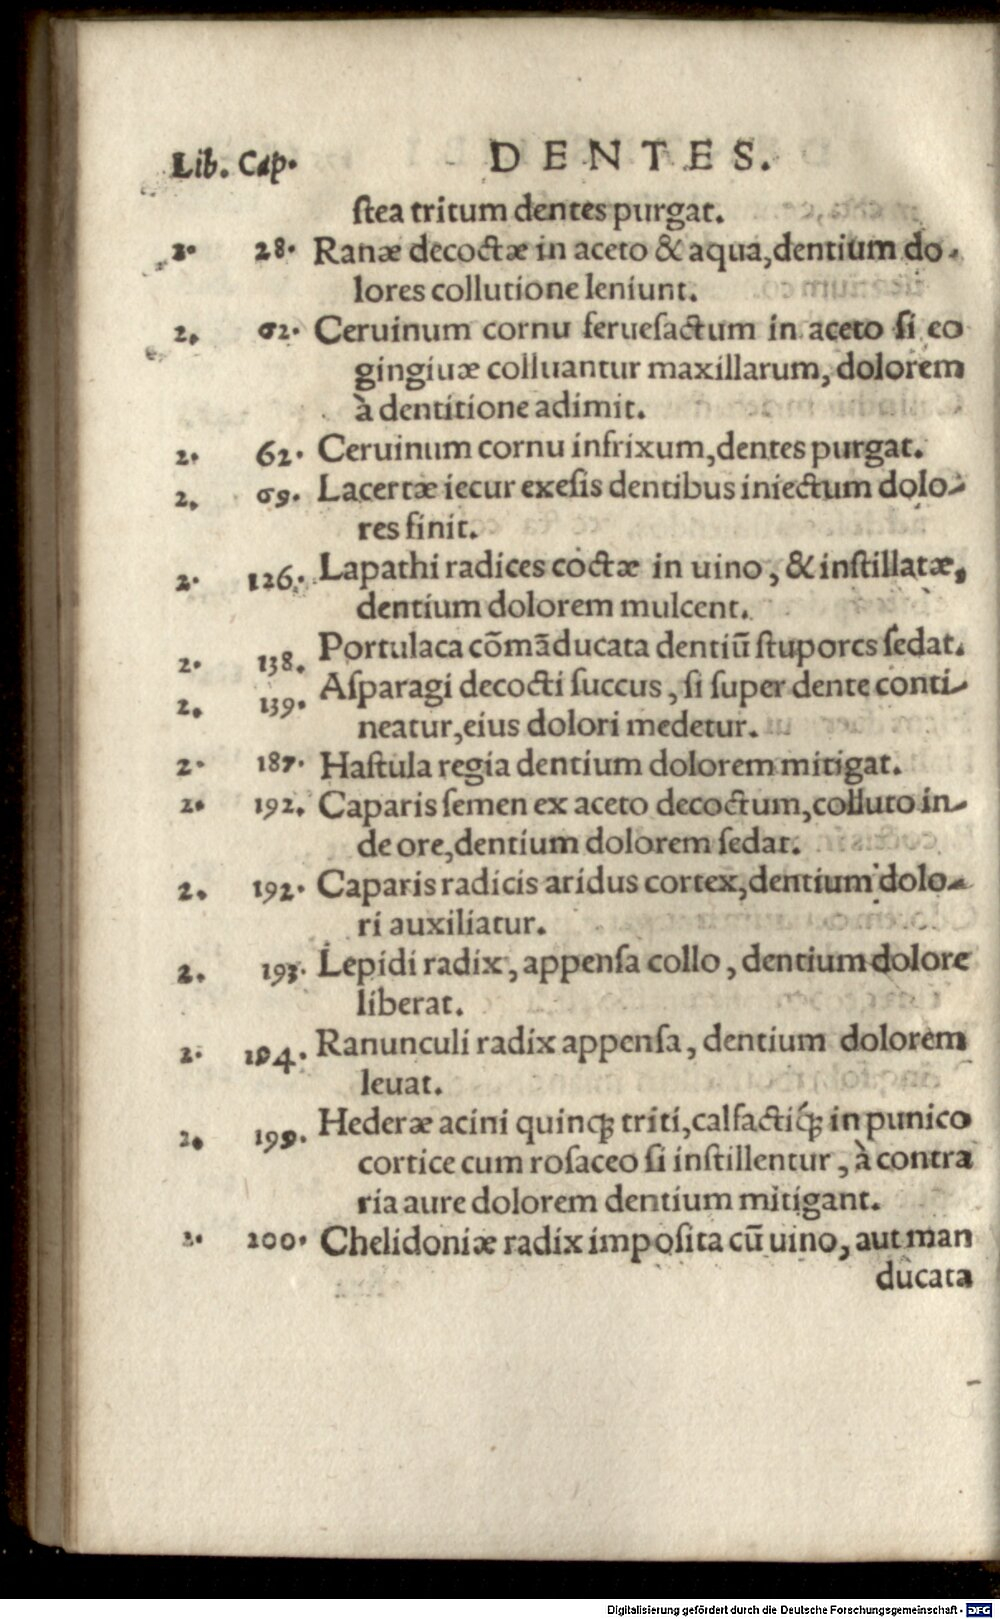 Lib. Cap. DENTES.
ſtea tritum dentes purgat.
2. 28. Ranæ decoctæ in aceto & aqua, dentium do-
lores collutione leniunt.
2. 62. Ceruinum cornu feruefactum in aceto ſi eo
gingiuæ colluantur maxillarum, dolorem
à dentitione adimit.
2. 62. Ceruinum cornu infrixum, dentes purgat.
2. 69. Lacertæ iecur exeſis dentibus iniectum dolo-
res finit.
2. 126. Lapathi radices coctæ in uino, & inſtillatæ,
dentium dolorem mulcent.
2. 138. Portulaca cõmãducata dentiũ ſtupores ſedat.
2. 139. Aſparagi decocti ſuccus, ſi ſuper dente conti-
neatur, eius dolori medetur.
2. 187. Haſtula regia dentium dolorem mitigat.
2. 192. Caparis ſemen ex aceto decoctum, colluto in-
de ore, dentium dolorem ſedat.
2. 192. Caparis radicis aridus cortex, dentium dolo-
ri auxiliatur.
2. 193. Lepidi radix, appenſa collo, dentium dolore
liberat.
2. 194. Ranunculi radix appenſa, dentium dolorem
leuat.
2. 199. Hederæ acini quinq; triti, calfactiq́; in punico
cortice cum roſaceo ſi inſtillentur, à contra
ria aure dolorem dentium mitigant.
2. 200. Chelidoniæ radix impoſita cũ uino, aut man
ducata
Digitalisierung gefördert durch die Deutsche Forschungsgemeinschaft - DFG